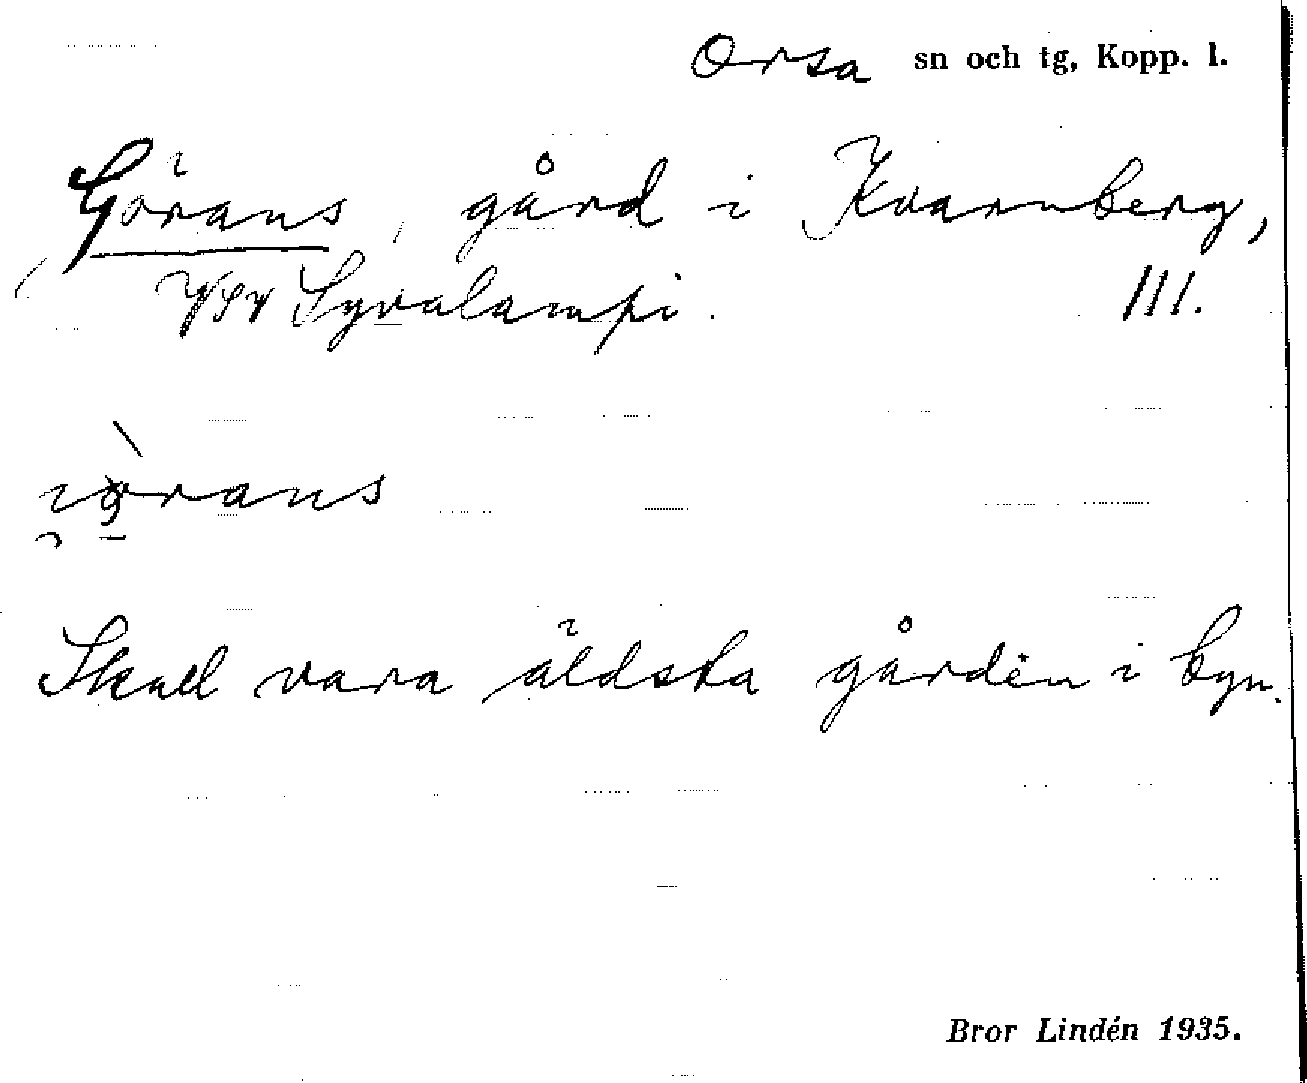 Orsa sn och tg, Kopp. l.
Görans, gård i Kvarnberg,
VSV Syvalampi. III.
Skall vara äldsta gården i byn.
Bror Lindén 1935.